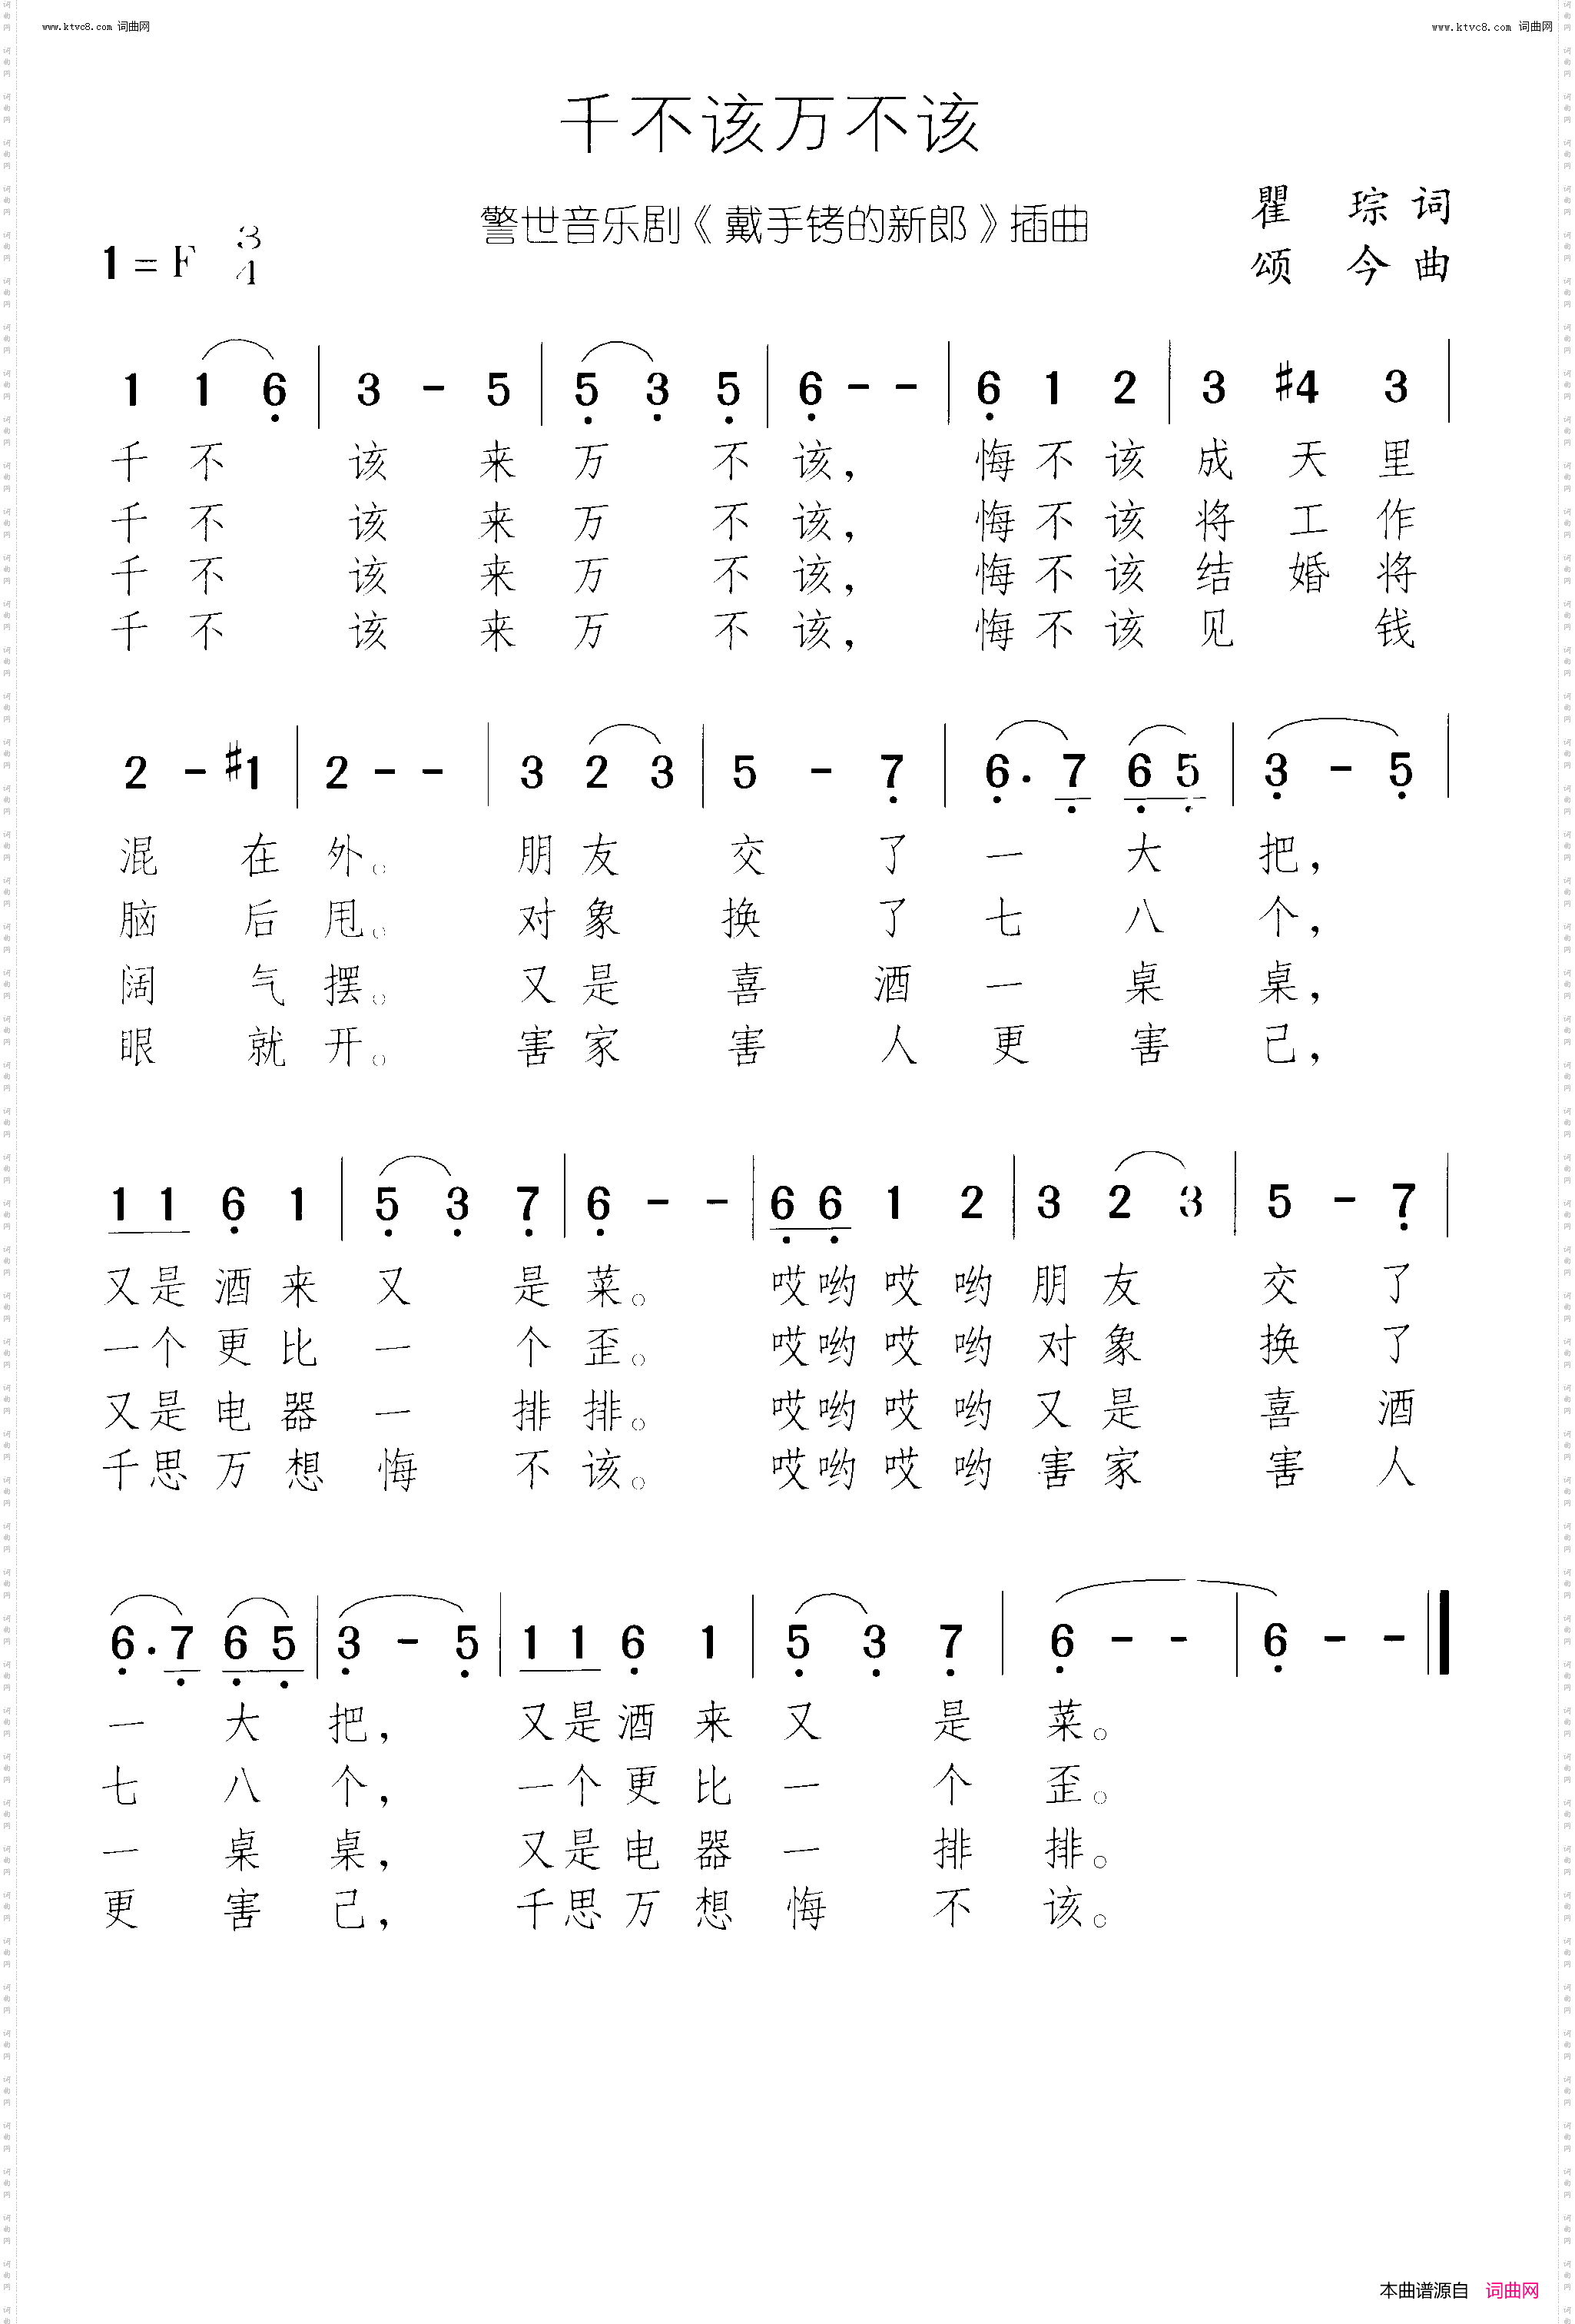 www.ktvc8.com 词曲网 www.ktvc8.com 词曲网
千不该万不该
警世音乐剧《戴手铐的新郎》插曲
瞿 琮 词
颂 今 曲
1 = F 3/4
1 1 6̣ | 3 - 5 | 5̣ 3̣ 5̣ | 6̣ - - | 6̣ 1 2 | 3 #4 3 |
千 不 该 来 万 不 该， 悔 不 该 成 天 里
千 不 该 来 万 不 该， 悔 不 该 将 工 作
千 不 该 来 万 不 该， 悔 不 该 结 婚 将
千 不 该 来 万 不 该， 悔 不 该 见 钱
2 - #1 | 2 - - | 3 2 3 | 5 - 7̣ | 6̣. 7̣ 6̣ 5̣ | 3̣ - 5̣ |
混 在 外。 朋 友 交 了 一 大 把，
脑 后 甩。 对 象 换 了 七 八 个，
阔 气 摆。 又 是 喜 酒 一 桌 桌，
眼 就 开。 害 家 害 人 更 害 己，
1 1 6̣ 1 | 5̣ 3̣ 7̣ | 6̣ - - | 6̣ 6̣ 1 2 | 3 2 3 | 5 - 7̣ |
又 是 酒 来 又 是 菜。 哎 哟 哎 哟 朋 友 交 了
一 个 更 比 一 个 歪。 哎 哟 哎 哟 对 象 换 了
又 是 电 器 一 排 排。 哎 哟 哎 哟 又 是 喜 酒
千 思 万 想 悔 不 该。 哎 哟 哎 哟 害 家 害 人
6̣. 7̣ 6̣ 5̣ | 3̣ - 5̣ | 1 1 6̣ 1 | 5̣ 3̣ 7̣ | 6̣ - - | 6̣ - - ‖
一 大 把， 又 是 酒 来 又 是 菜。
七 八 个， 一 个 更 比 一 个 歪。
一 桌 桌， 又 是 电 器 一 排 排。
更 害 己， 千 思 万 想 悔 不 该。
本曲谱源自 词曲网